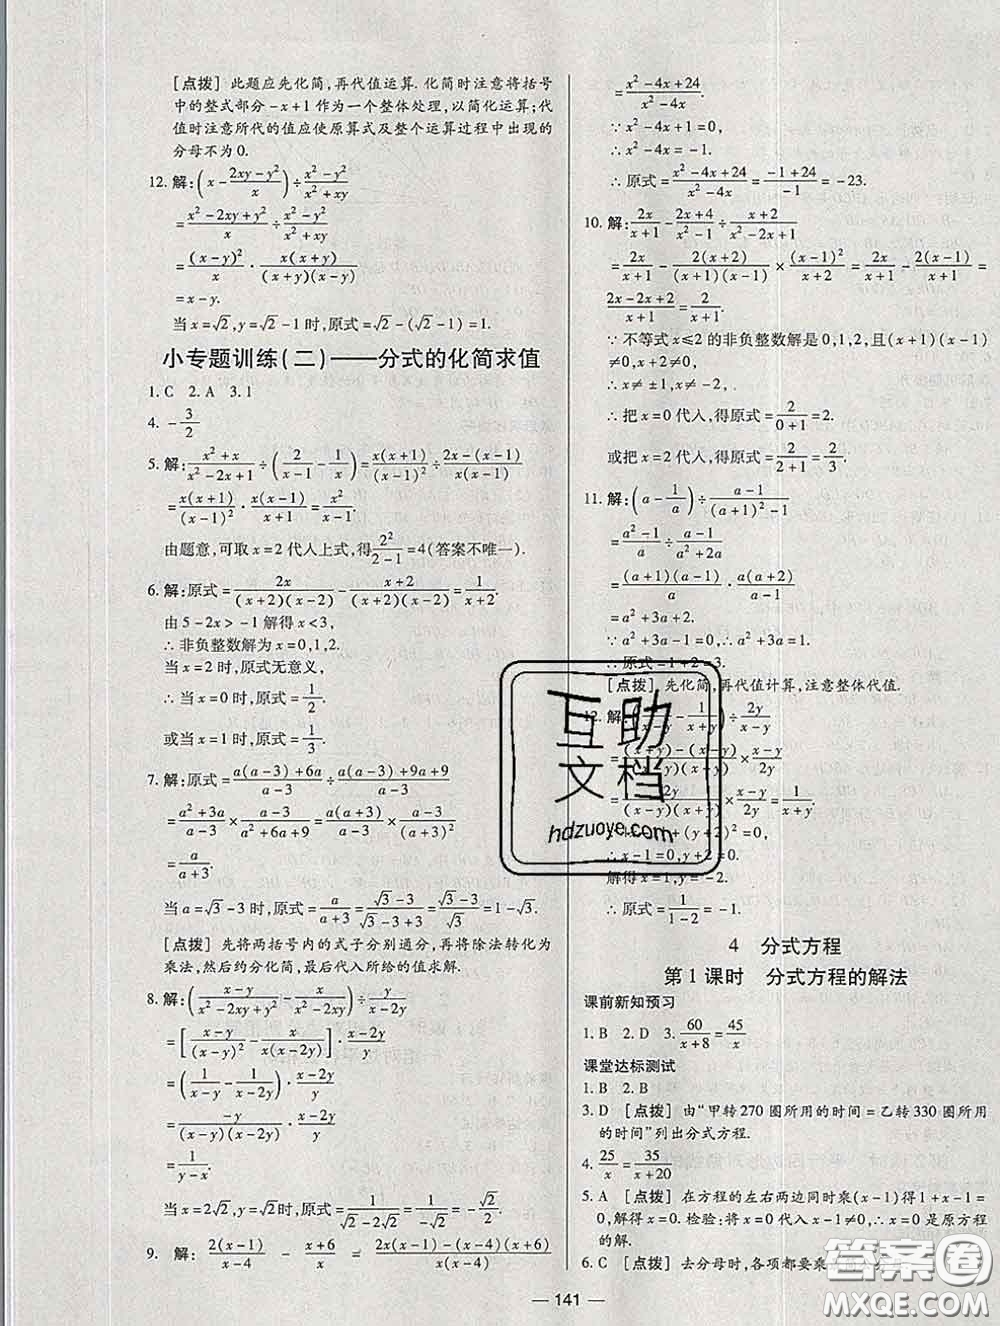 [点拨] 此题应先化简,再代值运算. 化简时注意将括号
中的整式部分-x+1作为一个整体处理,以简化运算;代
值时注意所代的值应使原算式及整个运算过程中出现的
分母不为0.
12. 解:(x-(2xy-y²)/x)÷(x²-y²)/(x²+xy)
=(x²-2xy+y²)/x÷(x²-y²)/(x²+xy)
=(x-y)²/x·x(x+y)/((x+y)(x-y))
=x-y.
当x=√2,y=√2-1时,原式=√2-(√2-1)=1.
小专题训练(二)——分式的化简求值
1. C 2. A 3. 1
4. -3/2
5. 解:(x²+x)/(x²-2x+1)÷(2/(x-1)-1/x)=x(x+1)/(x-1)²÷(2x-(x-1))/(x(x-1))
=x(x+1)/(x-1)²·x(x-1)/(x+1)=x²/(x-1).
由题意,可取x=2代人上式,得2²/(2-1)=4(答案不唯一).
6. 解:原式=2x/((x+2)(x-2))-(x+2)/((x+2)(x-2))=1/(x+2).
由5-2x>-1解得x<3,
∴非负整数解为x=0,1,2.
当x=2时,原式无意义,
∴当x=0时,原式=1/2.
或当x=1时,原式=1/3.
7. 解:原式=(a(a-3)+6a)/(a-3)÷(a(a-3)+9a+9)/(a-3)
=(a²+3a)/(a-3)×(a-3)/(a²+6a+9)=a(a+3)/(a-3)×(a-3)/(a+3)²=
a/(a+3).
当a=√3-3时,原式=a/(a+3)=(√3-3)/(√3-3+3)=(√3-3)/√3=1-√3.
[点拨] 先将两括号内的式子分别通分,再将除法转化为
乘法,然后约分化简,最后代入所给的值求解.
8. 解:((x-y)/(x²-2xy+y²)-(x-y)/(x²-2xy))÷y/(x-2y)
=[(x-y)/(x-y)²-(x-y)/(x(x-2y))]·(x-2y)/y
=(1/(x-y)-(x-y)/(x(x-2y)))·(x-2y)/y
=-y²/(x(x-y)(x-2y))·(x-2y)/y
=1/(y-x).
当x=2√2,y=√2时,原式=1/(√2-2√2)=1/(-√2)=-√2/2.
9. 解:2(x-1)/(x-4)-(x+6)/x=(2x(x-1)-(x-4)(x+6))/(x(x-4))
=(x²-4x+24)/(x²-4x).
∵x²-4x+1=0,
∴x²-4x=-1.
∴原式=(x²-4x+24)/(x²-4x)=(-1+24)/(-1)=-23.
10. 解:2x/(x+1)-(2x+4)/(x²-1)÷(x+2)/(x²-2x+1)
=2x/(x+1)-2(x+2)/((x+1)(x-1))×(x-1)²/(x+2)=2x/(x+1)-2(x-1)/(x+1)=
(2x-2x+2)/(x+1)=2/(x+1).
∵不等式x≤2的非负整数解是0,1,2,且(x+1)(x-1)
≠0,x+2≠0,
∴x≠±1,x≠-2.
∴把x=0代人,得原式=2/(0+1)=2.
或把x=2代人,得原式=2/(2+1)=2/3.
11. 解:(a-1/a)÷(a-1)/((a+1)²-1)
=(a²-1)/a÷(a-1)/(a²+2a)
=(a+1)(a-1)/a·a(a+2)/(a-1)
=a²+3a+2.
∵a²+3a-1=0,∴a²+3a=1.
∴原式=1+2=3.
[点拨] 先化简,再代值计算,注意整体代值.
12. 解:(1/(x-y)-1/(x+y))÷2y/(x-y)
=((x+y)-(x-y))/((x+y)(x-y))×(x-y)/2y
=2y/((x-y)(x+y))×(x-y)/2y=1/(x+y).
+(y+2)²=0,
∴x-1=0,y+2=0.
解得x=1,y=-2.
∴原式=1/(1-2)=-1.
4 分式方程
第1课时 分式方程的解法
课前新知预习
1. B 2. D 3. 60/(x+8)=45/x
课堂达标测试
1. B 2. B
3. D [点拨] 由“甲转270圈所用的时间=乙转330圈所用
的时间”列出分式方程.
4. 25/x=35/(x+20)
5. A [点拨] 在方程的左右两边同时乘(x-1)得1+x-1=
0,解得x=0. 检验:将x=0代入x-1≠0,∴x=0是原方程
的解.
6. C [点拨] 去分母时,各项都要乘
互助
文档
hdzuoye.com
答案圈
MXQE.COM
— 141 —